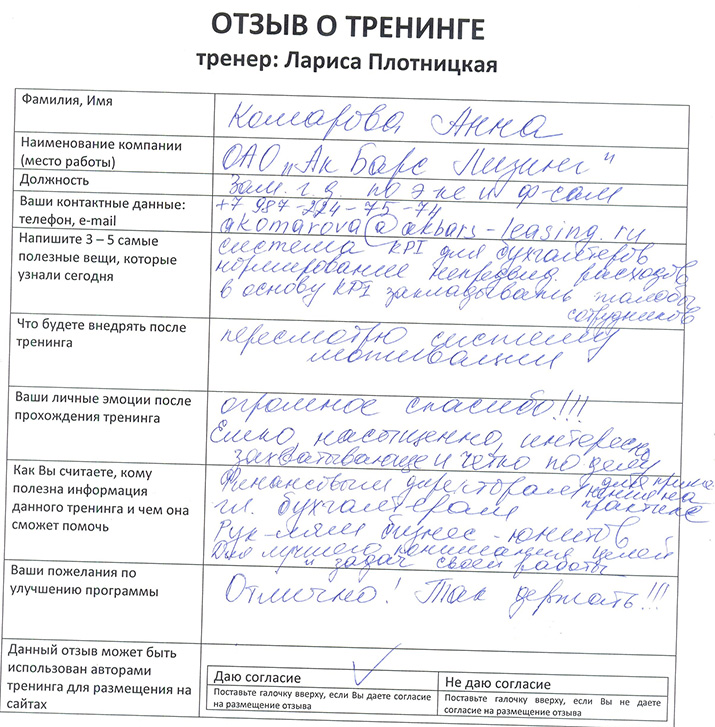 ОТЗЫВ О ТРЕНИНГЕ
тренер: Лариса Плотницкая
Фамилия, Имя
Комарова Анна
Наименование компании
(место работы)
ОАО „Ак Барс Лизинг"
Должность
Зам. г д по эк и ф-сам
Ваши контактные данные:
телефон, e-mail
+7 987-224-75-74
akomarova@akbars-leasing.ru
Напишите 3 – 5 самые
полезные вещи, которые
узнали сегодня
система KPI для бухгалтеров
нормирование непредвид. расходов
в основу KPI закладывать жалобы
сотрудников
Что будете внедрять после
тренинга
пересмотрю систему
мотивации
Ваши личные эмоции после
прохождения тренинга
огромное спасибо!!!
Емко, насыщенно, интересно,
захватывающе и четко по делу
Как Вы считаете, кому
полезна информация
данного тренинга и чем она
сможет помочь
Финансовым директорам для приме
нения на
гл. бухгалтерам практике
Рук-лям бизнес-юнитов
Для лучшего понимания целей
и задач своей работы
Ваши пожелания по
улучшению программы
Отлично! Так держать!!!
Данный отзыв может быть
использован авторами
тренинга для размещения на
сайтах
Даю согласие
Поставьте галочку вверху, если Вы даете согласие
на размещение отзыва
Не даю согласие
Поставьте галочку вверху, если Вы не даете
согласие на размещение отзыва